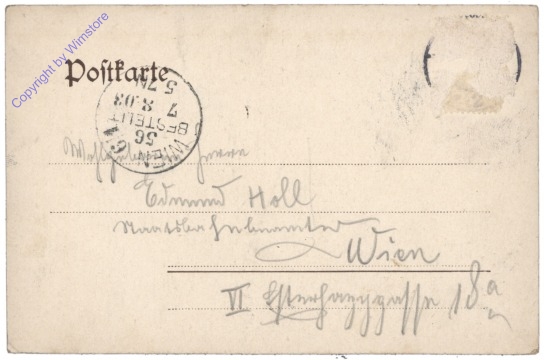 Copyright by Wimstore
Postkarte
WIEN 6/1
56
BESTELLT
7 8.03
5 7N
Wohlgeboren Herrn
Edmund Holl
Staatsbahnbeamter
Wien
VI Esterhazygasse 18a